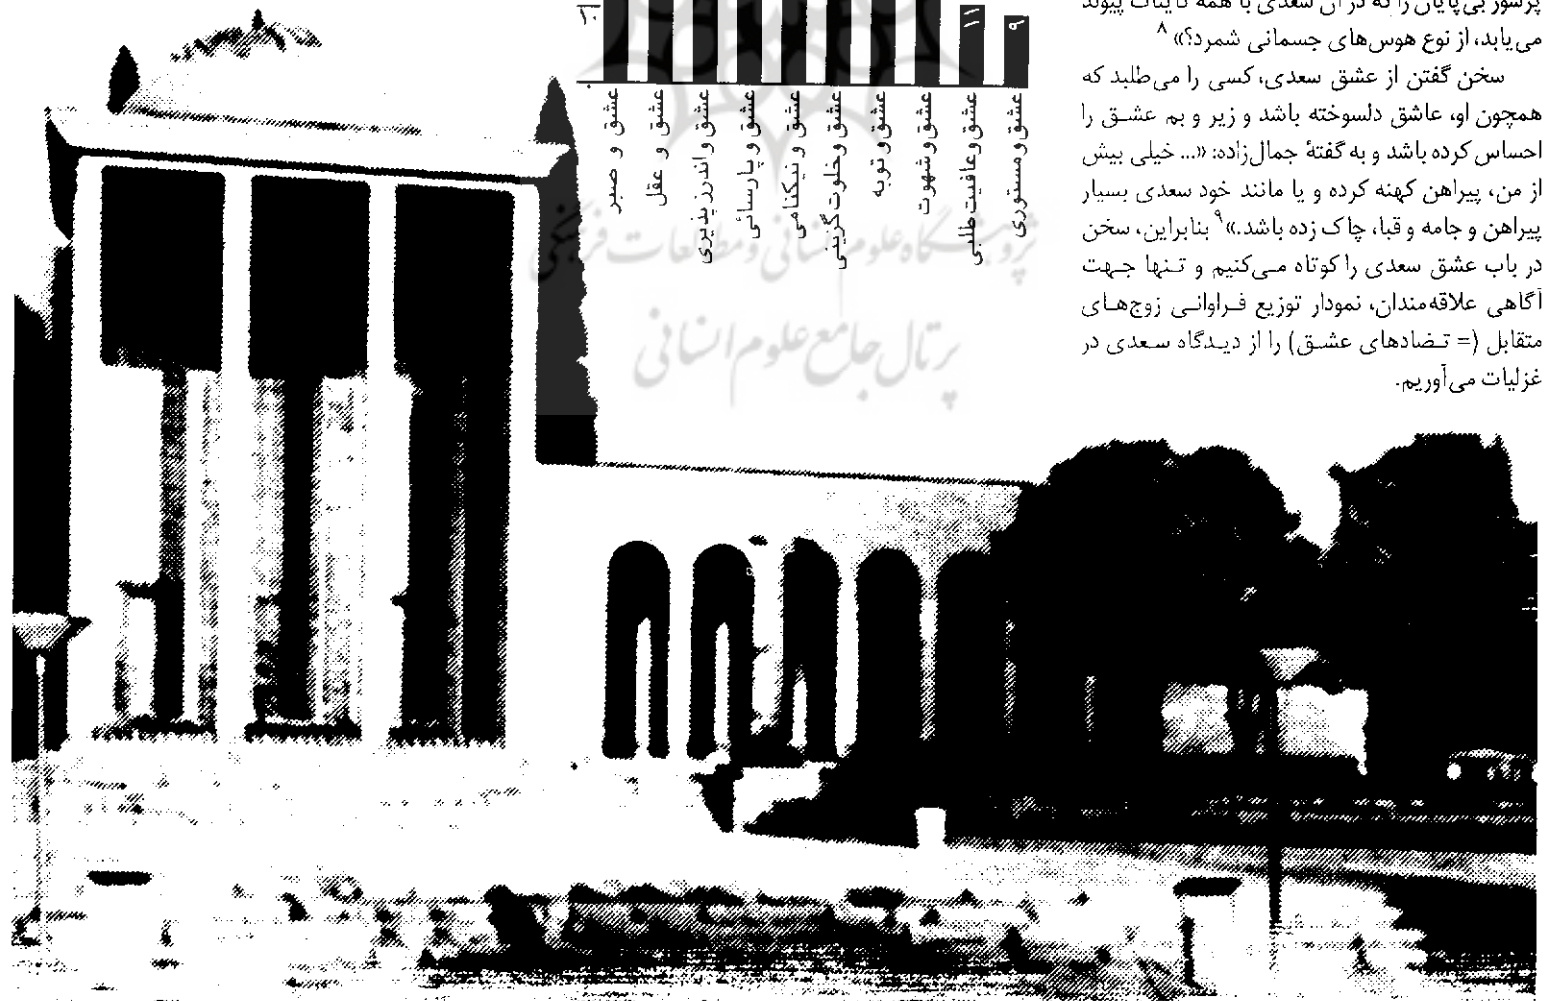 پرشور بی‌پایان را که در آن سعدی با همه کاینات پیوند
می‌یابد، از نوع هوس‌های جسمانی شمرد؟» ۸
سخن گفتن از عشق سعدی، کسی را می‌طلبد که
همچون او، عاشق دلسوخته باشد و زیر و بم عشق را
احساس کرده باشد و به گفتهٔ جمال‌زاده: «... خیلی بیش
از من، پیراهن کهنه کرده و یا مانند خود سعدی بسیار
پیراهن و جامه و قبا، چاک زده باشد.»۹ بنابراین، سخن
در باب عشق سعدی را کوتاه می‌کنیم و تنها جهت
آگاهی علاقه‌مندان، نمودار توزیع فراوانی زوج‌های
متقابل (= تضادهای عشق) را از دیدگاه سعدی در
غزلیات می‌آوریم.
۱۱
۹
عشق و صبر
عشق و عقل
عشق و اندرزپذیری
عشق و پارسائی
عشق و نیکنامی
عشق و خلوت‌گزینی
عشق و توبه
عشق و شهوت
عشق و عافیت‌طلبی
عشق و مستوری
پژوهشگاه علوم انسانی و مطالعات فرهنگی
پرتال جامع علوم انسانی